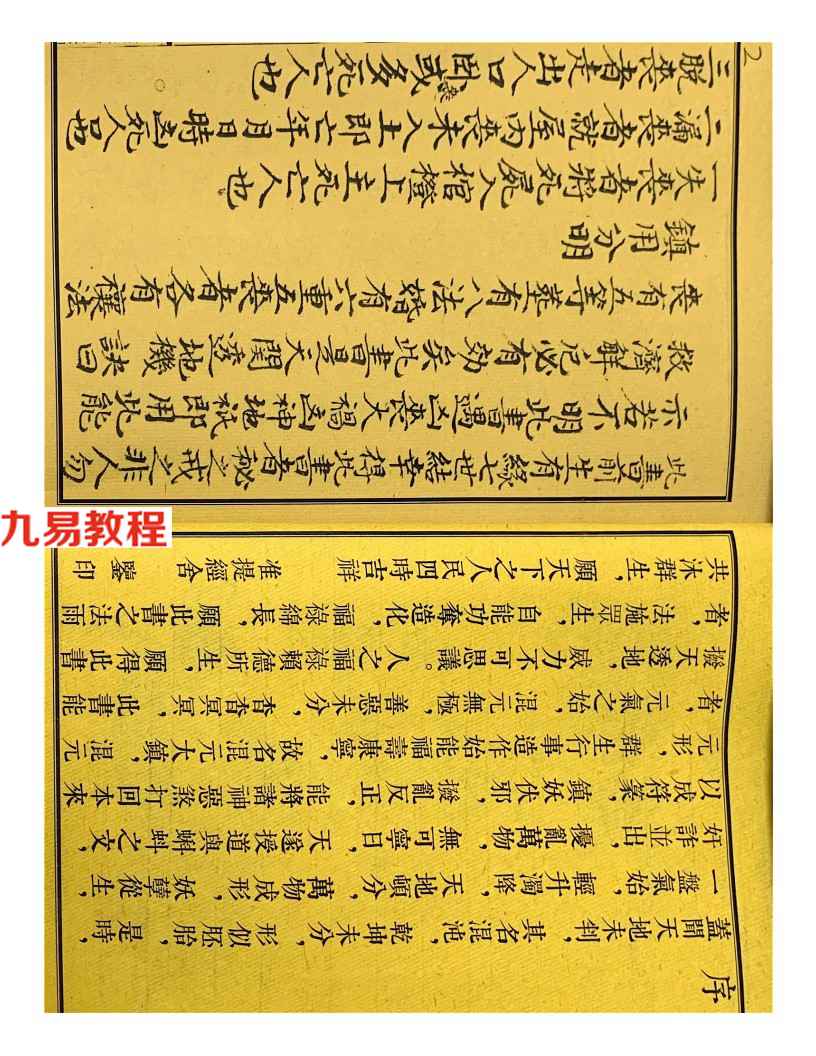 序
蓋聞天地未判，其名混沌，乾坤未分，形似胚胎，是時，
一盤氣始，輕升濁降，天地頓分，萬物成形，妖孽從生，
奸詐並出，擾亂萬物，無可寧日，天遂授道與蝌蚪之文，
以成符篆，鎮妖伏邪，撥亂反正，能將諸神惡煞打回本來
元形，群生行事造作始能福壽康寧，故名混元大鎮，混元
者，元氣之始，混元無極，善惡未分，杳杳冥冥，此書能
撥天透地，威力不可思議。人之福祿賴德所生，願得此書
者，法施眾生，自能功奪造化，福祿綿長，願此書之法雨
共沐群生，願天下之人民四時吉祥 准提經舍 鑒印
此書前生有緣七世結幸得此書者秘之戒之非人勿
示若不明此書遇凶喪大禍凶神地祇即用此能
救濟解厄必有効矣此書是天關透地機訣曰
喪有五等葬有八法婚有六重五喪者各有禳法
鎮用分明
一失喪者將死屍入棺橙上主死亡人也
二漏喪者就屋內喪未入土即亡年月日時凶死人口也
三脫喪者走出人口卧或多死亡人也
2
九易教程